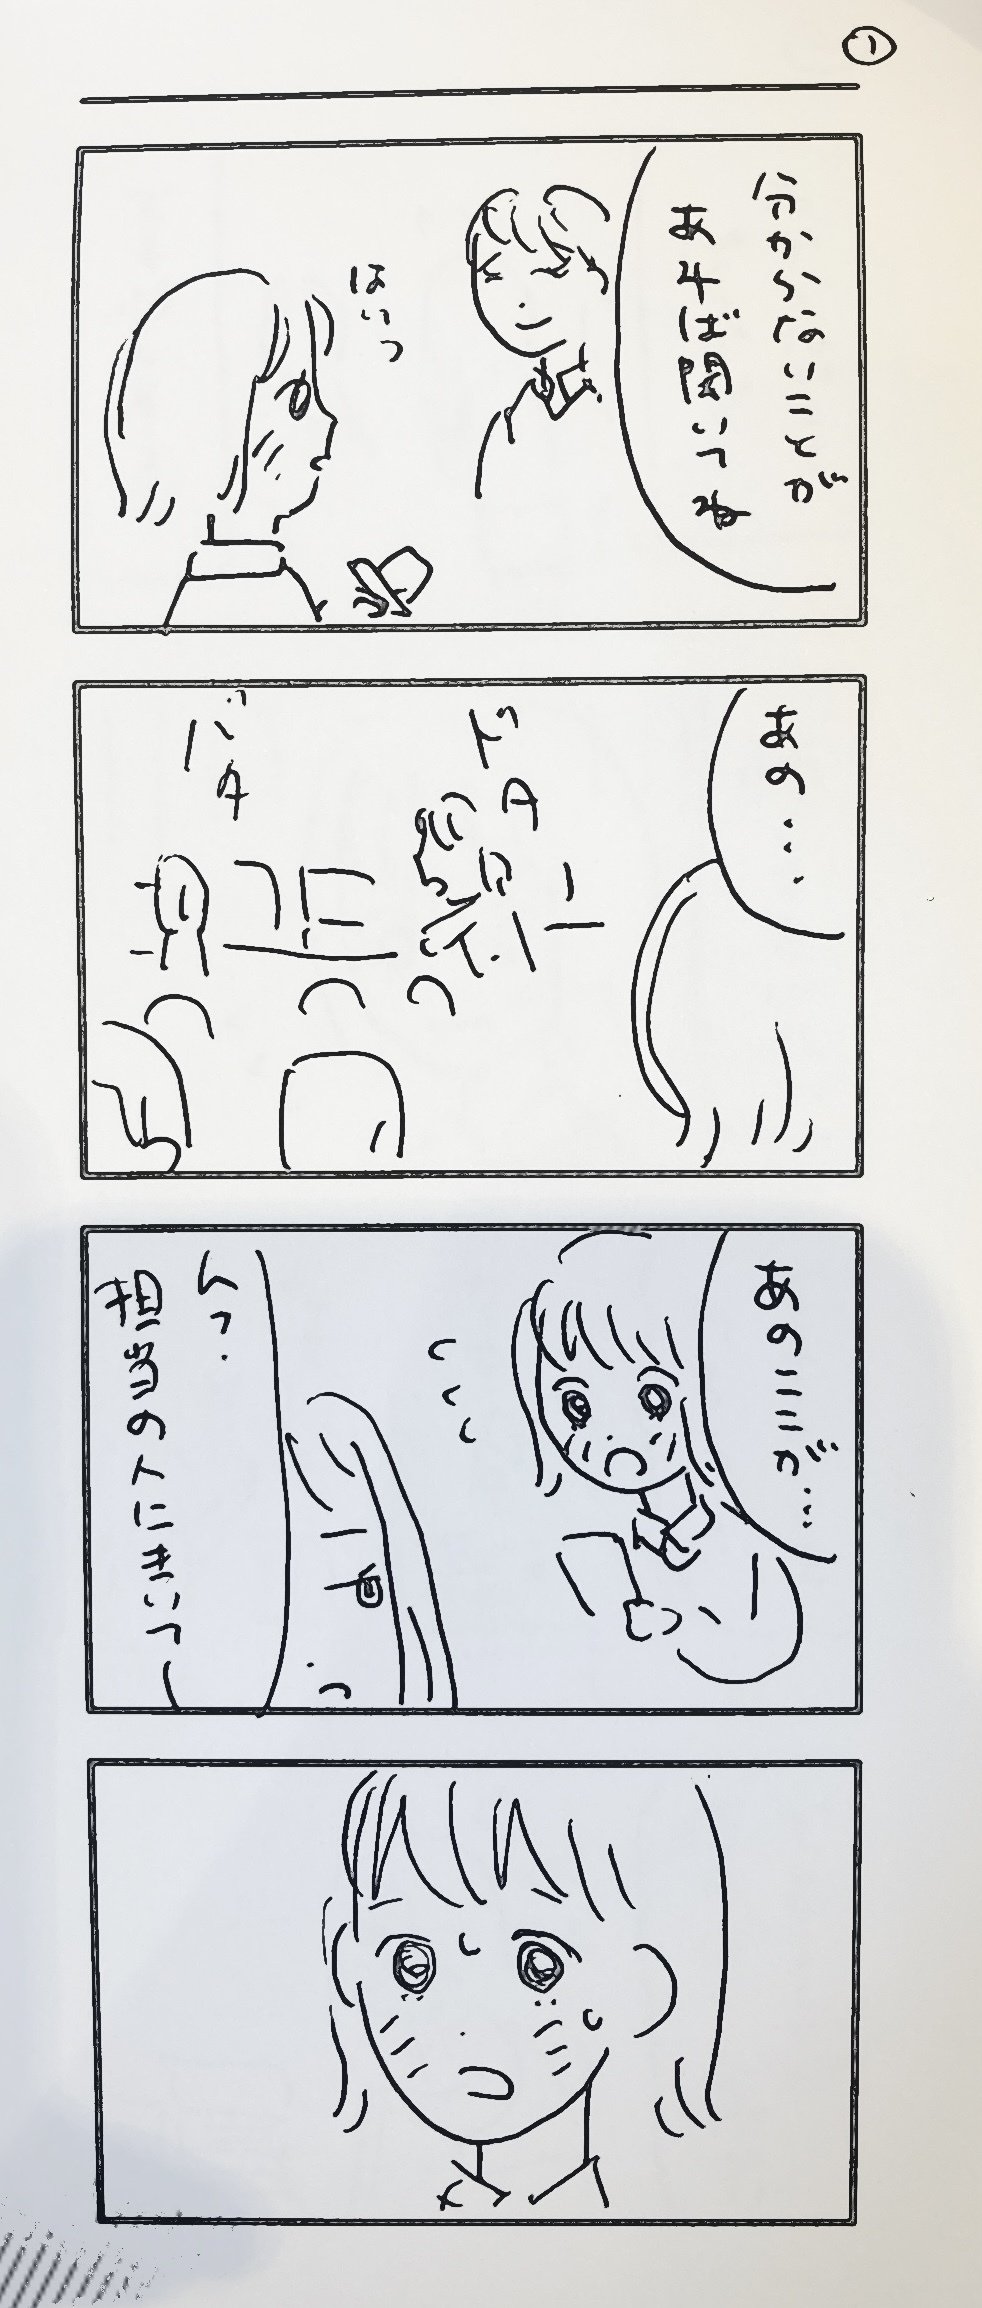 ①
分からないことが
あれば聞いてね
はいっ
あの…
ドタ
バタ
あのここが…
ん?
担当の人にきいてー